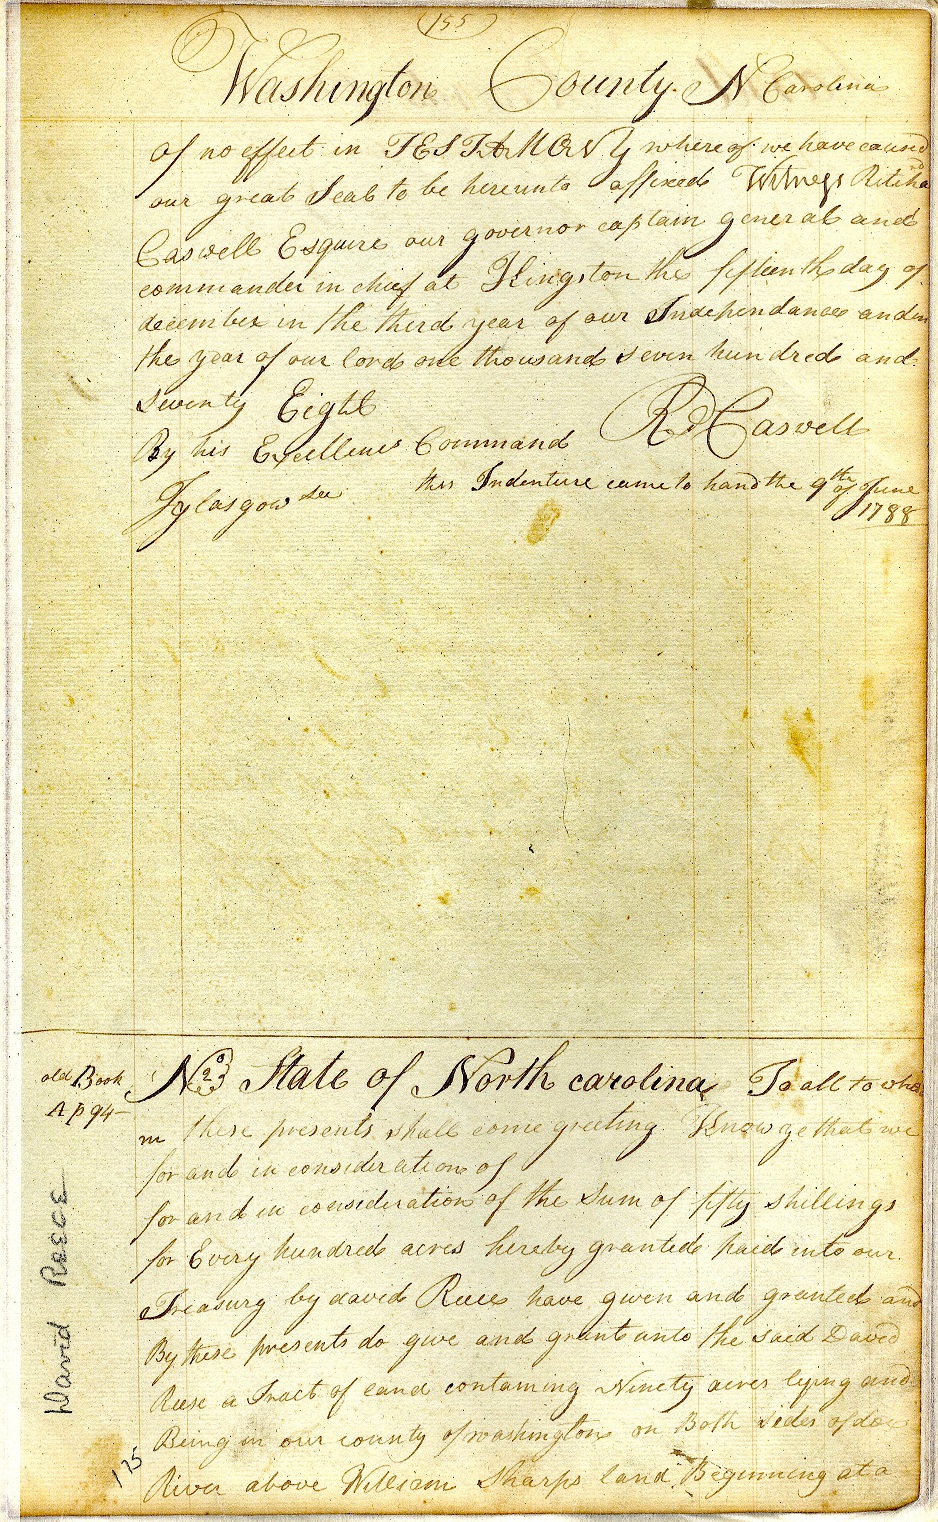 155
Washington County. N Carolina
of no effect in TESTAMONY where of we have caused
our great Seal to be hereunto affixed Witness Ritchd
Caswell Esquire our governor captain general and
commander in chief at Kingston the fifteenth day of
december in the third year of our Independance and in
the year of our lord one thousand seven hundred and
seventy Eight
Rd Caswell
By his Excellencs Command
this Indenture came to hand the 9th of June
1788
Jglasgow sec
old Book
A p 94
No 23 State of North carolina To all to who
m these presents shall come greeting Know ye that we
for and in consideration of
for and in consideration of the Sum of fifty shillings
for Every hundred acres hereby granted paid into our
Treasury by david Reece have given and granted and
By these presents do give and grant unto the said David
Reese a Tract of land containing Ninety acres lying and
Being in our county of washington on Both sides of doe
River above William Sharps land Beginning at a
David Reece
175